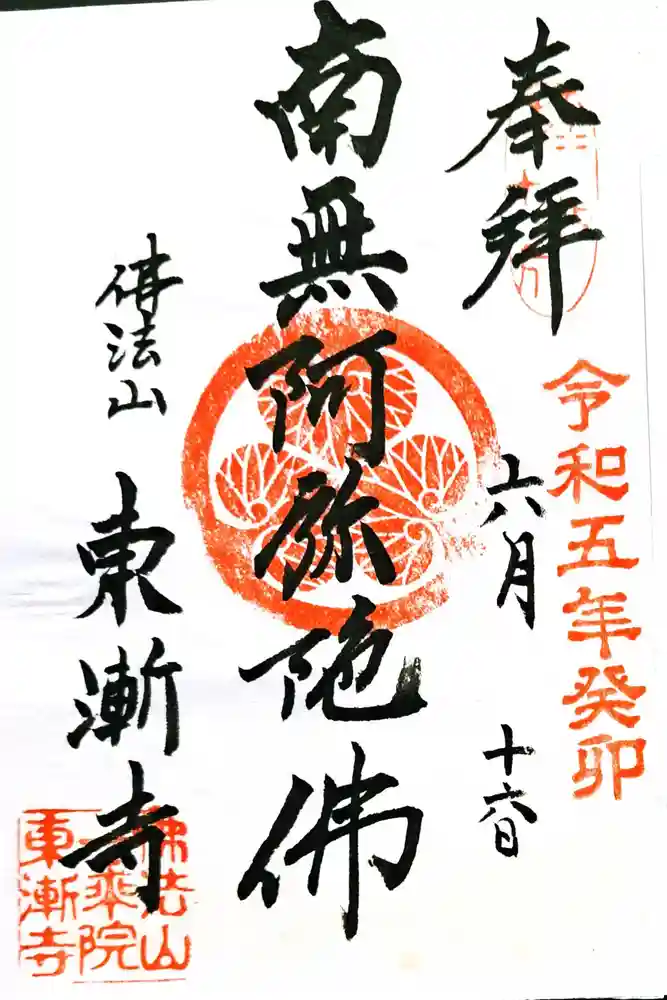 奉拝
令和五年癸卯
六月 十六日
南無阿弥陀佛
佛法山 東漸寺
佛法山
一乗院
東漸寺